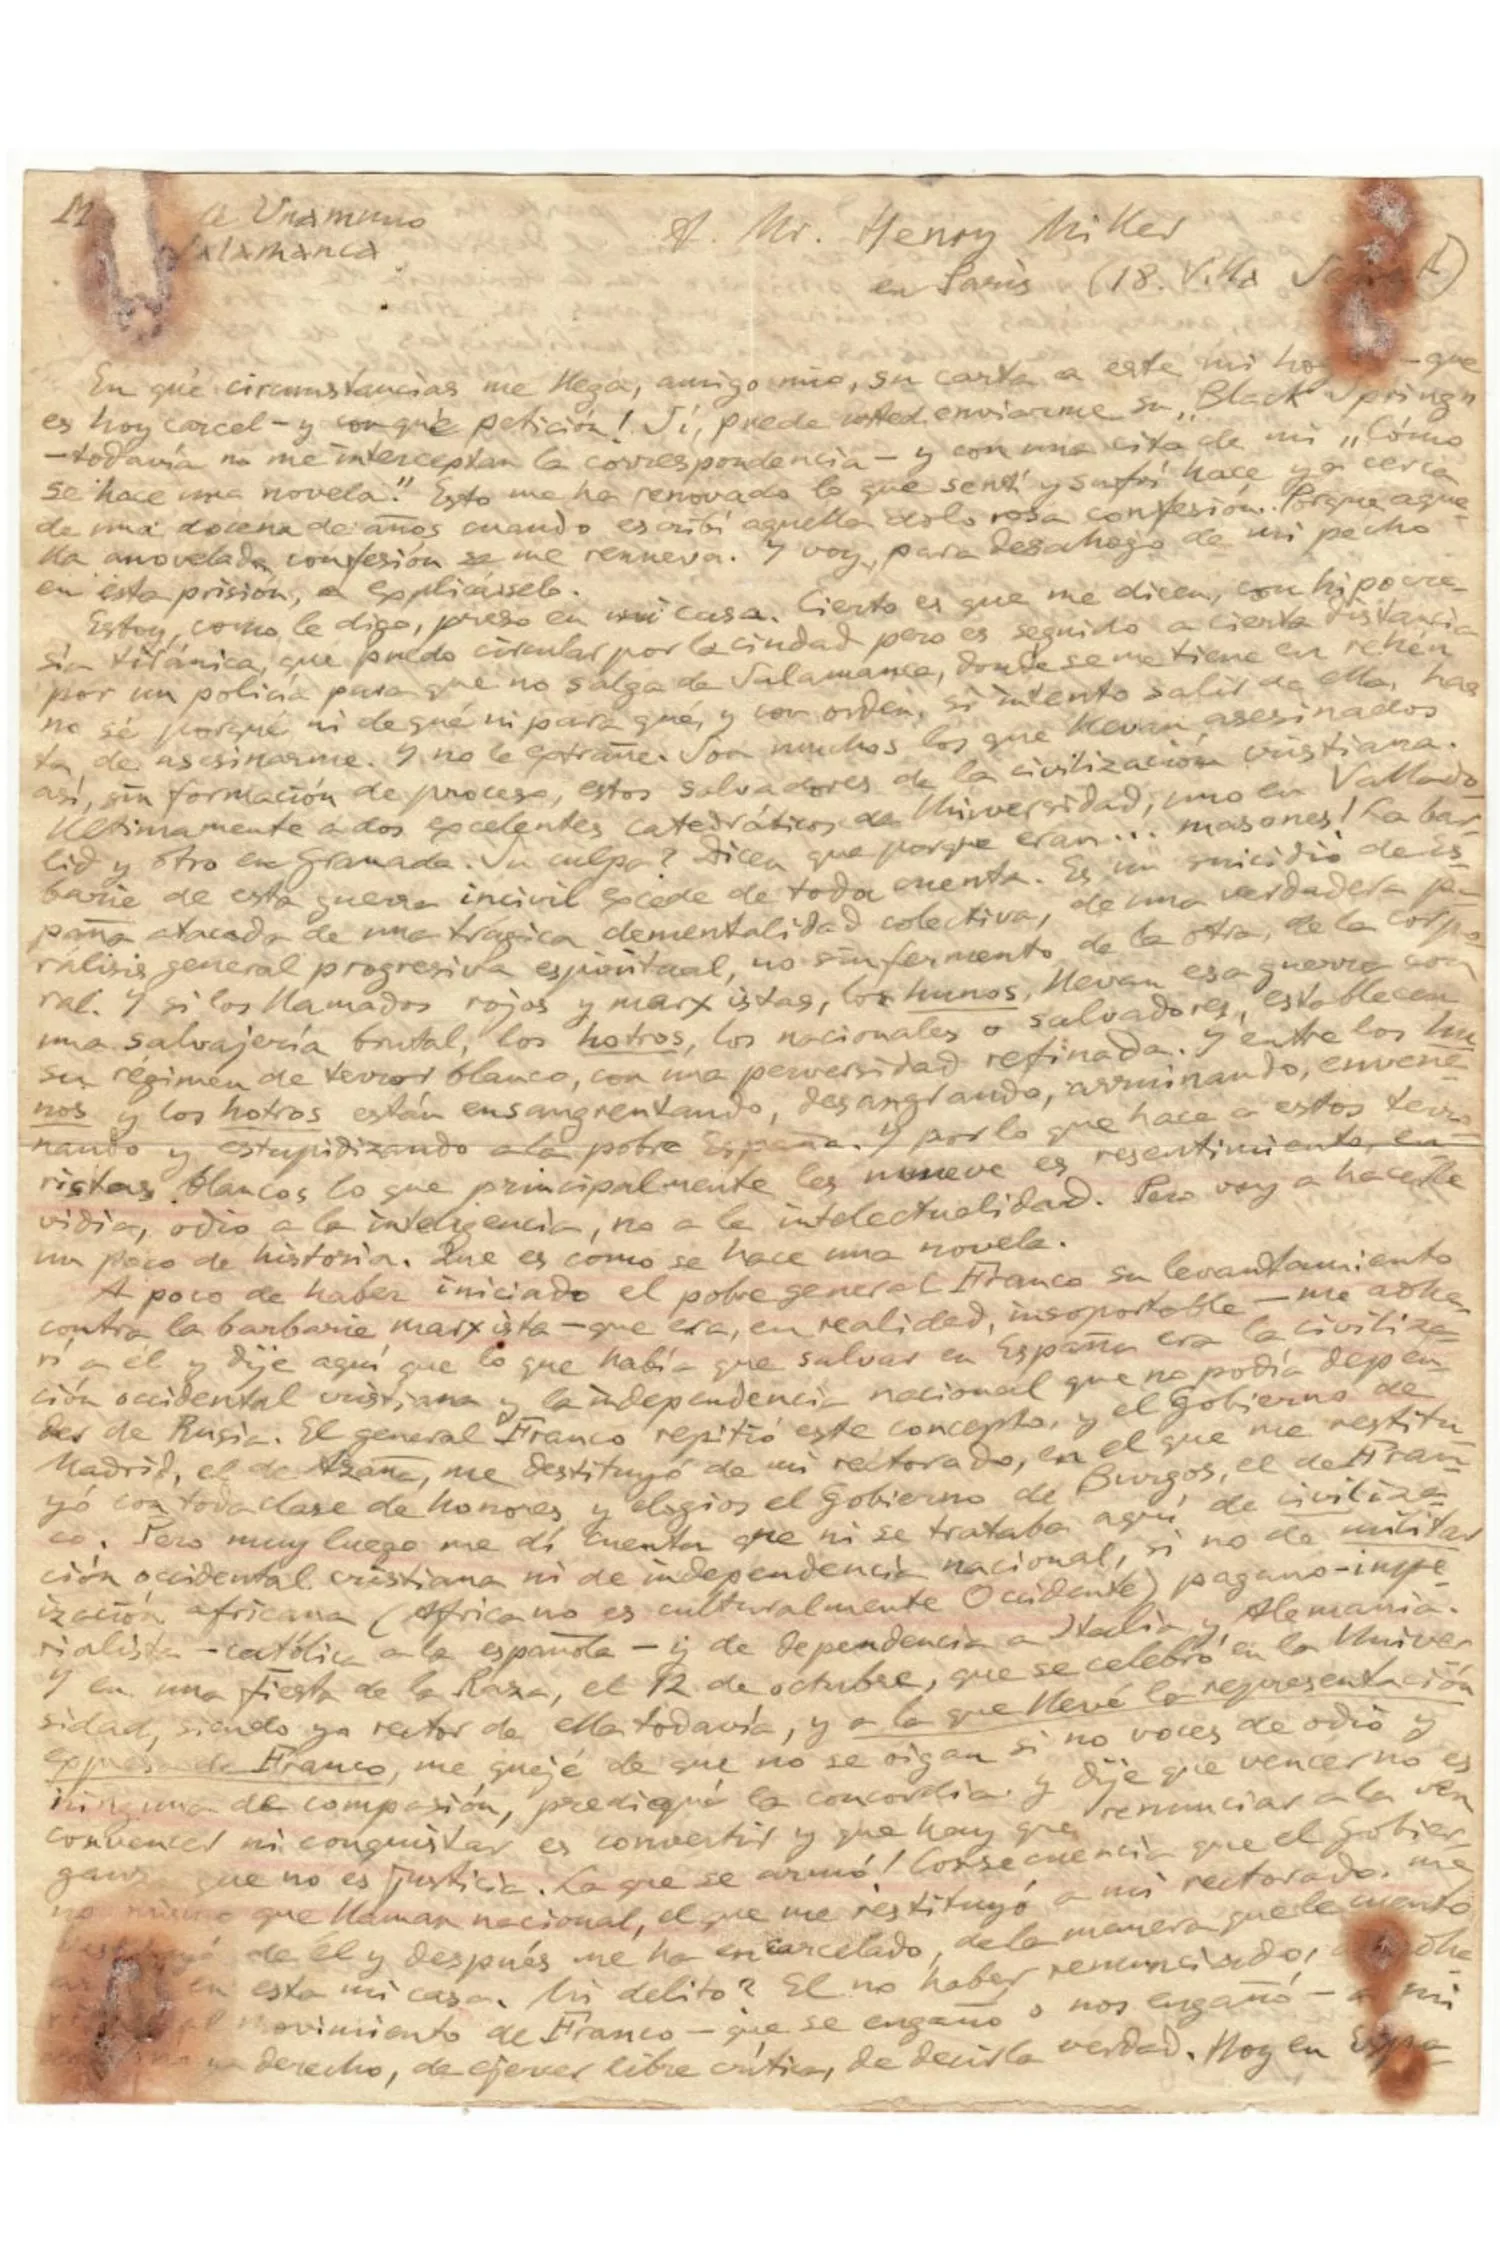 M de Unamuno
Salamanca
A. Mr. Henry Miller
en París (18. Villa
En qué circunstancias me llega, amigo mío, su carta a este mi ho – que
es hoy carcel – y con qué petición! Sí, puede usted enviarme su „Black Spring"
– todavía no me interceptan la correspondencia – y con una cita de mi „Cómo
se hace una novela". Esto me ha renovado lo que sentí y sufrí hace ya cerca
de una docena de años cuando escribí aquella dolorosa confesión. Porque aque-
lla anovelada confesión se me renueva. Y voy, para desahogo de mi pecho
en esta prisión, a explicársela.
Estoy, como le digo, preso en mi casa. Cierto es que me dicen, con hipocre-
sía tiránica, que puedo circular por la ciudad pero es seguido a cierta distancia
por un policía para que no salga de Salamanca, donde se me tiene en rehén
no sé porqué ni de qué ni para qué, y con orden, si intento salir de ella, has
ta, de asesinarme. Y no le extrañe. Son muchos los que llevan asesinados
así, sin formación de proceso, estos salvadores de la civilización cristiana.
Ultimamente a dos excelentes catedráticos de Universidad, uno en Vallado
lid y otro en Granada. Su culpa? Dicen que porque eran... masones! La bar-
barie de esta guerra incivil excede de toda cuenta. Es un suicidio de Es-
paña atacada de una trágica dementalidad colectiva, de una verdadera pa-
rálisis general progresiva espiritual, no sin fermento de la otra, de la corpo
ral. Y si los llamados rojos y marxistas, los hunos, llevan esa guerra con
una salvajería brutal, los hotros, los nacionales o salvadores, establecen
su régimen de terror blanco, con una perversidad refinada. Y entre los hu
nos y los hotros están ensangrentando, desangrando, arruinando, envene-
nando y estupidizando a la pobre España. Y por lo que hace a estos terro
ristas blancos lo que principalmente les mueve es resentimiento, en
vidia, odio a la inteligencia, no a la intelectualidad. Pero voy a hacerle
un poco de historia. Que es como se hace una novela.
A poco de haber iniciado el pobre general Franco su levantamiento
contra la barbarie marxista – que era, en realidad, insoportable – me adhe
rí a él y dije aquí que lo que había que salvar en España era la civiliza-
ción occidental cristiana y la independencia nacional que no podía depen-
der de Rusia. El general Franco repitió este concepto, y el Gobierno de
Madrid, el de Azaña, me destituyó de mi rectorado, en el que me restitu
yó con toda clase de honores y elogios el Gobierno de Burgos, el de Fran-
co. Pero muy luego me dí cuenta que ni se trataba aquí de civiliza-
ción occidental cristiana ni de independencia nacional, si no de militar
ización africana (Africa no es culturalmente Occidente) pagano-impe
rialista – católica a la española – y de dependencia a Italia y Alemania.
Y en una fiesta de la Raza, el 12 de octubre, que se celebró en la Univer
sidad, siendo yo rector de ella todavía, y a la que llevé la representación
expresa de Franco, me quejé de que no se oigan si no voces de odio y
ninguna de compasión, prediqué la concordia y dije que vencer no es
convencer ni conquistar es convertir y que hay que renunciar a la ven
ganz que no es justicia. La que se armó! Consecuencia que el Gobier-
no mismo que llaman nacional, el que me restituyó a mi rectorado, me
destituyó de él y después me ha encarcelado, de la manera que le cuento
en esta mi casa. Mi delito? El no haber renunciado, adhe
al movimiento de Franco – que se engañó o nos engañó – a mi
derecho, de ejercer libre crítica, de decir la verdad. Hoy en Espa-